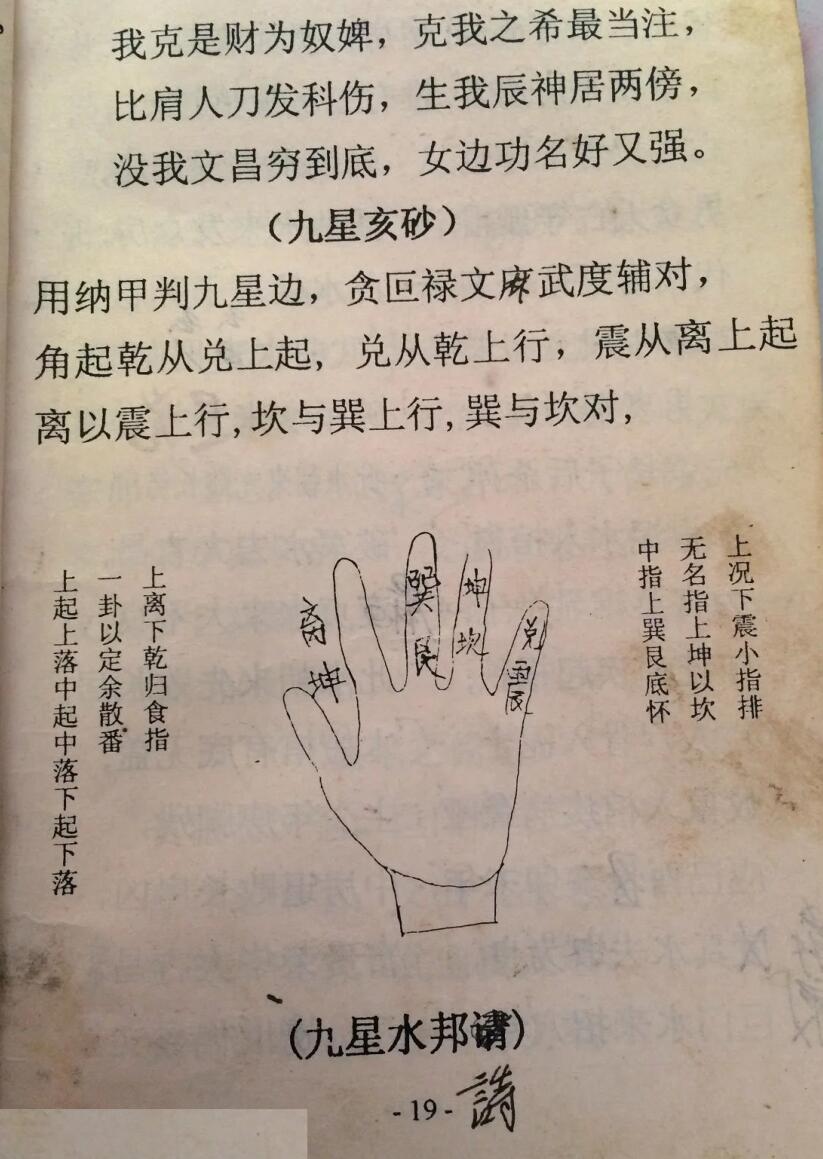 我克是财为奴婢，克我之希最当注，
比肩人刀发科伤，生我辰神居两傍，
没我文昌穷到底，女边功名好又强。
（九星亥砂）
用纳甲判九星边，贪叵禄文麻武度辅对，
角起乾从兑上起，兑从乾上行，震从离上起
离以震上行,坎与巽上行,巽与坎对,
上况下震小指排
无名指上坤以坎
中指上巽艮底怀
上离下乾归食指
一卦以定余散番
上起上落中起中落下起下落
离
坤
巽
艮
坤
坎
兑
震
（九星水邦请）
- 19 -
詩